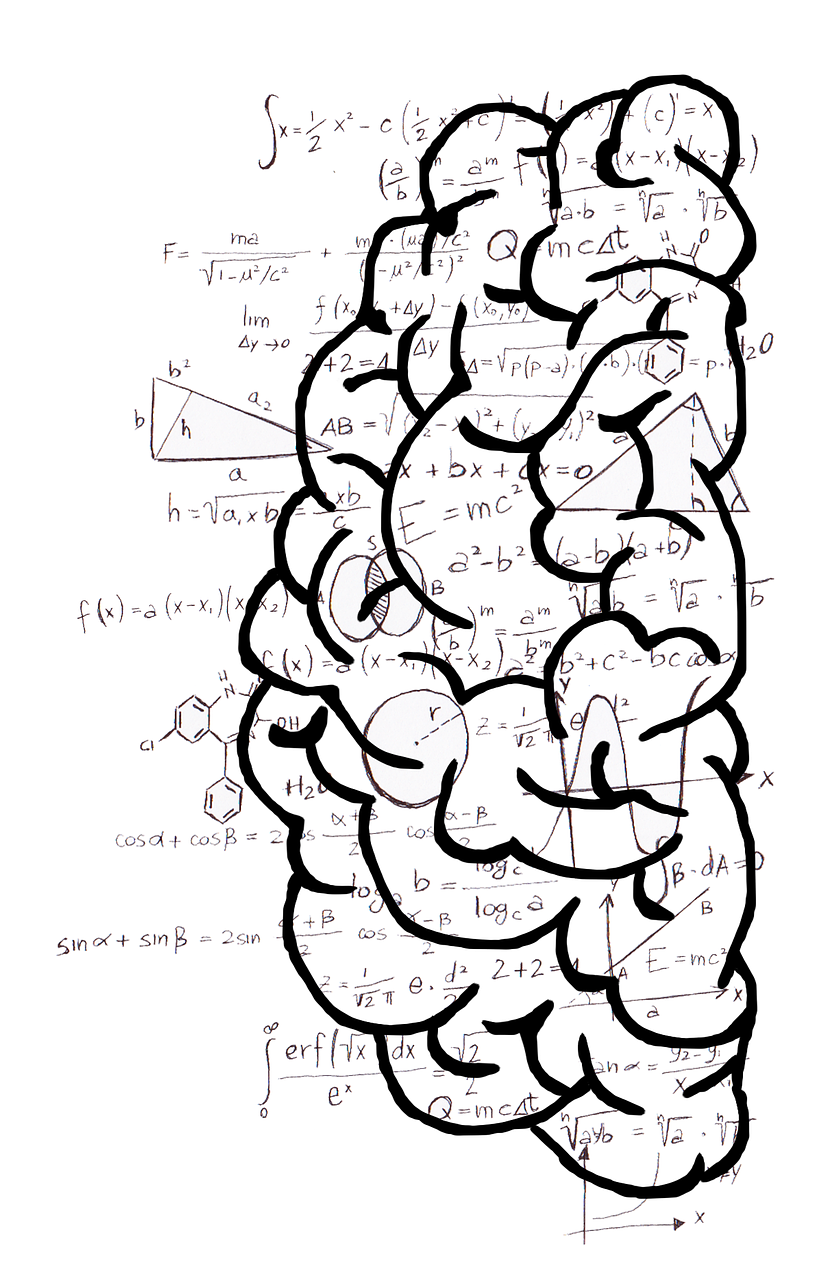 ∫x = 1/2 x² - c (1/2 x² + c)' = (1/ x²) + (c)' = x
(a/b) = aᵐ/ f( ) = a (x-x₁)(x-x₂)
ⁿ√a·b = ⁿ√a · ⁿ√b
F = ma/√1-μ²/c² + m · (μa)/c²/( -μ²/c²)²
Q = mcΔt
H
N
O
N
lim Δy→0 f(x₀ y₀ +Δy) - f(x₀,y₀)/Δy
2+2=4
Δ=√p(p-a)·( -b)·( = p·r
H₂O
b²
a₂
b
h
a
AB = √(x₂-x₁)²+(y y₁)²
a
b
x + bx + x = 0
h = √a, x b = xb/c
E = mc²
c
a²-b² = (a-b)(a+b)
S
A
B
f(x) = a (x-x₁)(x x₂)
ⁿ√ab = ⁿ√a · ⁿ√b
( /b)ᵐ = aᵐ/bᵐ
f(x) = a (x-x₁)(x-x₂)
a² = b²+c²-bc cos α
H
N
OH
Cl
r
z = 1/√2 π e
Y
X
H₂O
cosα + cosβ = 2cos α+β/2 cos α-β/2
logₐ b = log_c /log_c a
∫B·dA=0
y
B
A
x
a
sinα + sinβ = 2sin α+β/2 cos α-β/2
E = mc²
z = 1/√2 π e · d²/2
2+2=4
∞ ∫ 0 erf(√x) dx/eˣ = √2/2
tan α = y₂-y₁/x x₁
Q = mcΔt
ⁿ√a b = ⁿ√a · ⁿ√
Y
x